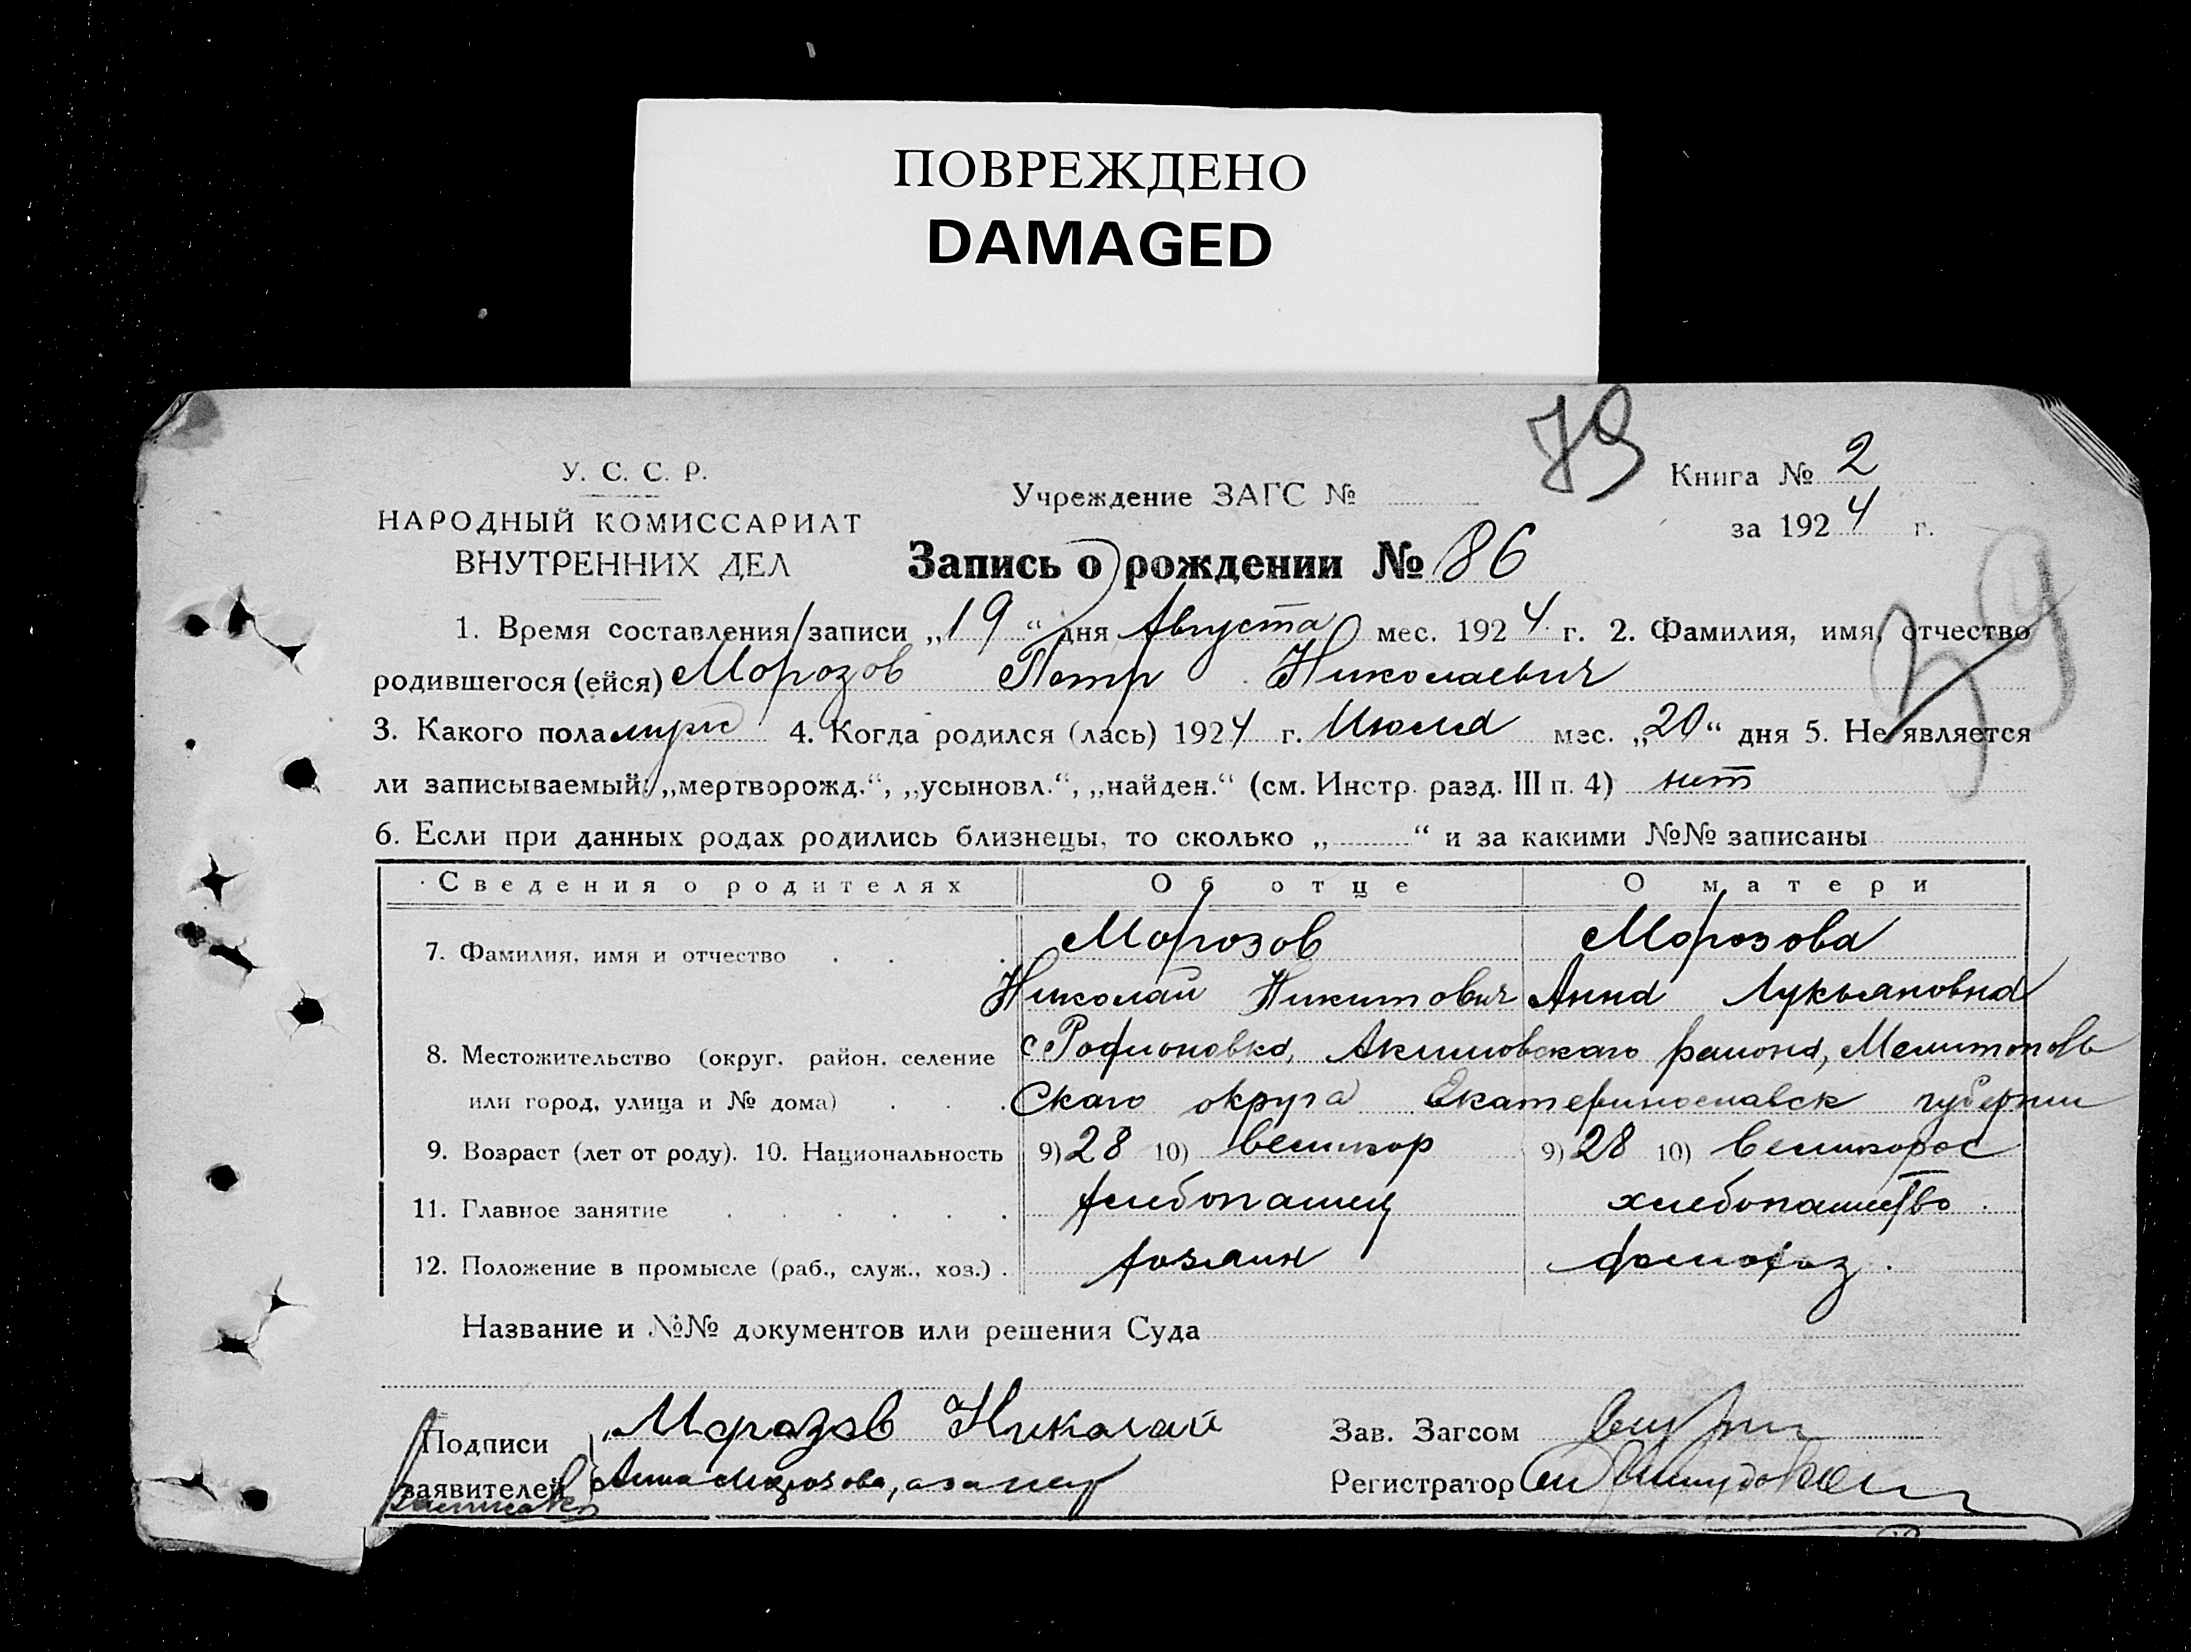 ПОВРЕЖДЕНО
DAMAGED
79
У. С. С. Р.
НАРОДНЫЙ КОМИССАРИАТ
ВНУТРЕННИХ ДЕЛ
Учреждение ЗАГС №
Книга № 2
за 1924 г.
Запись о рождении № 86
79
1. Время составления записи „19“ дня Августа мес. 1924 г. 2. Фамилия, имя, отчество
родившегося (ейся) Морозов Петр Николаевич
3. Какого пола муж 4. Когда родился (лась) 1924 г. Июля мес. „20“ дня 5. Не является
ли записываемый: „мертворожд.“, „усыновл.“, „найден.“ (см. Инстр. разд. III п. 4) нет
6. Если при данных родах родились близнецы, то сколько „ “ и за какими №№ записаны
Сведения о родителях Об отце О матери
7. Фамилия, имя и отчество Морозов Морозова
Николай Никитович Анна Лукьяновна
8. Местожительство (округ, район, селение с Родионовка, Акимовскаго района, Мелитополь
или город, улица и № дома) Скаго округа Екатеринославск губернии
9. Возраст (лет от роду). 10. Национальность 9) 28 10) великор 9) 28 10) великорос
11. Главное занятие хлебопашец хлебопашество
12. Положение в промысле (раб., служ., хоз.) хозяин домохоз.
Название и №№ документов или решения Суда
Подписи заявителей
Морозов Николай
Анна Морозова,
Зав. Загсом
Регистратор